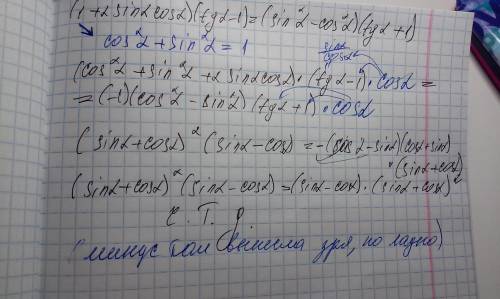 (1+2sinαcosα)(tgα-1)=(sin²α-cos²α)(tgα+1)
cos²α+sin²α=1
sinα/cosα
(cos²α+sin²α+2sinαcosα)·(tgα-1)·cosα=
=(-1)(cos²α-sin²α)(tgα+1)·cosα
(sinα+cosα)²(sinα-cosα)=-(cosα-sinα)(cosα+sinα)
·(sinα+cosα)
(sinα+cosα)²(sinα-cosα)=(sinα-cosα)·(sinα+cosα)²
ч.т.д.
(минус там вынесла зря, но ладно)